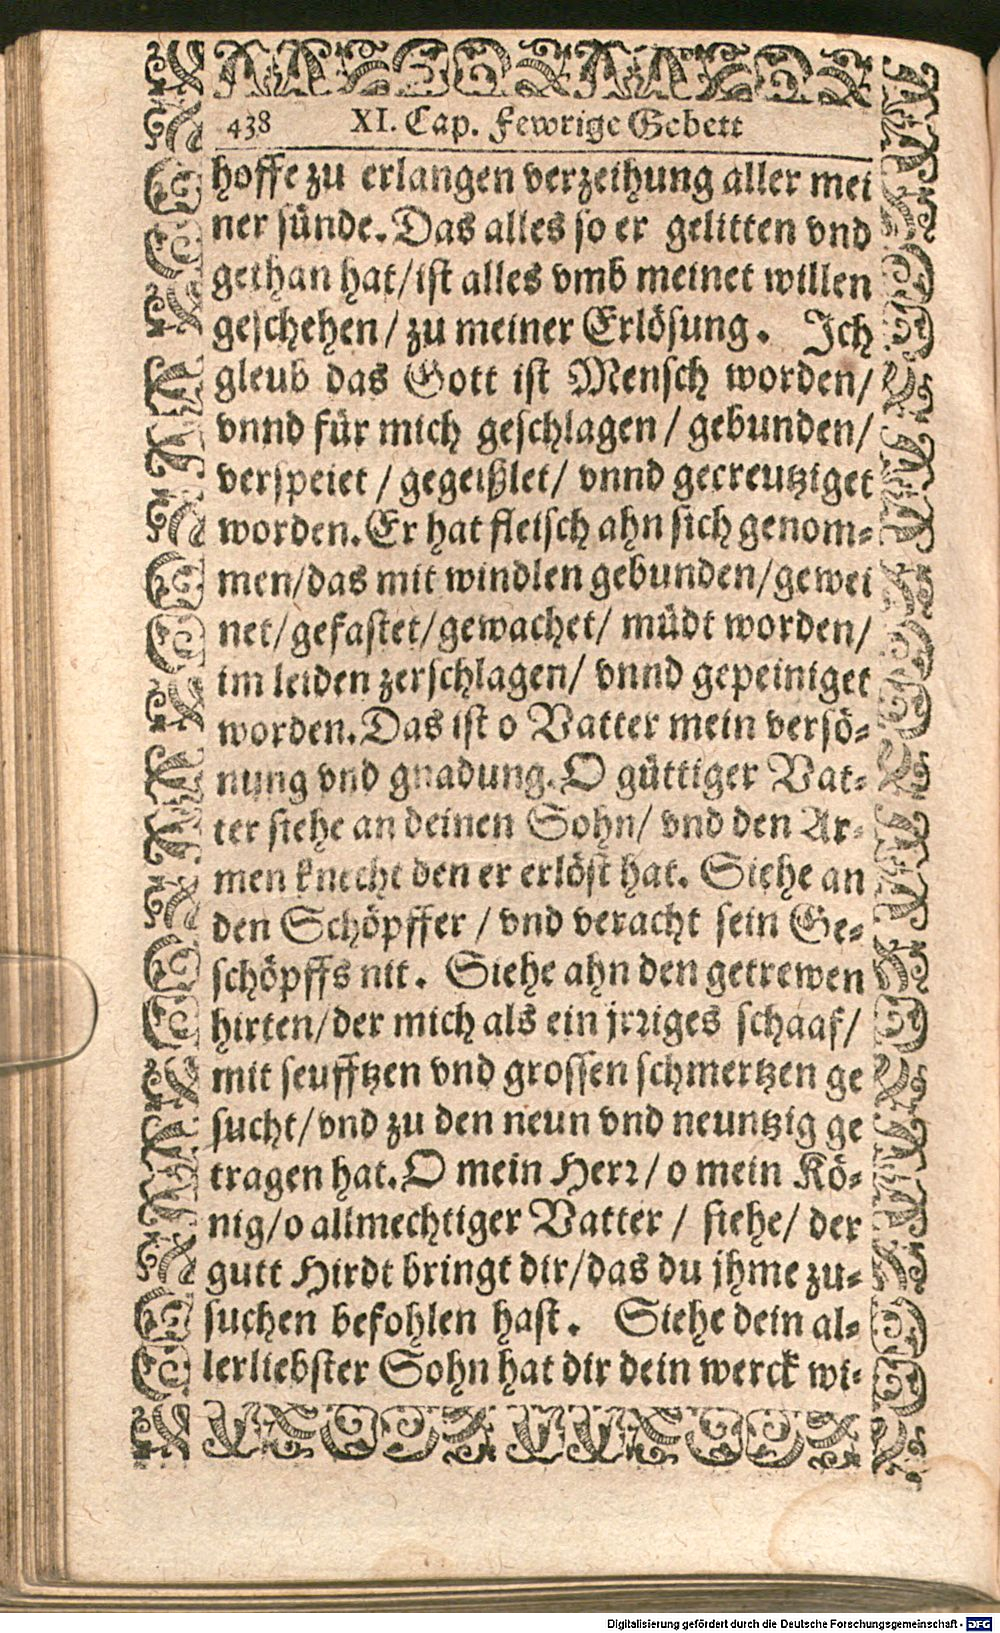 438 XI. Cap. Fewrige Gebett
hoffe zu erlangen verzeihung aller mei
ner sünde. Das alles so er gelitten vnd
gethan hat/ist alles vmb meinet willen
geschehen/ zu meiner Erlösung. Ich
gleub das Gott ist Mensch worden/
vnnd für mich geschlagen/ gebunden/
verspeiet/ gegeißlet/ vnnd gecreutziget
worden. Er hat fleisch ahn sich genom-
men/das mit windlen gebunden/gewei
net/gefastet/gewachet/ müdt worden/
im leiden zerschlagen/ vnnd gepeiniget
worden. Das ist o Vatter mein versö-
nung vnd gnadung. O güttiger Vat-
ter siehe an deinen Sohn/ vnd den Ar-
men knecht den er erlöst hat. Siehe an
den Schöpffer/ vnd veracht sein Ge-
schöpffs nit. Siehe ahn den getrewen
hirten/der mich als ein jrriges schaaf/
mit seufftzen vnd grossen schmertzen ge
sucht/vnd zu den neun vnd neuntzig ge
tragen hat. O mein Herr/o mein Kö-
nig/o allmechtiger Vatter/ siehe/ der
gutt Hirdt bringt dir/das du jhme zu-
suchen befohlen hast. Siehe dein al-
lerliebster Sohn hat dir dein werck wi-
Digitalisierung gefördert durch die Deutsche Forschungsgemeinschaft - DFG